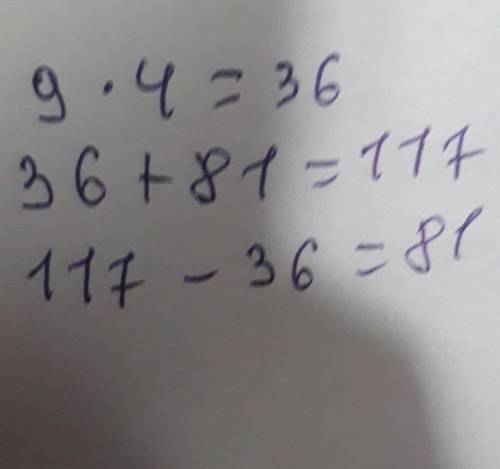 9 · 4 = 36
36 + 81 = 117
117 - 36 = 81